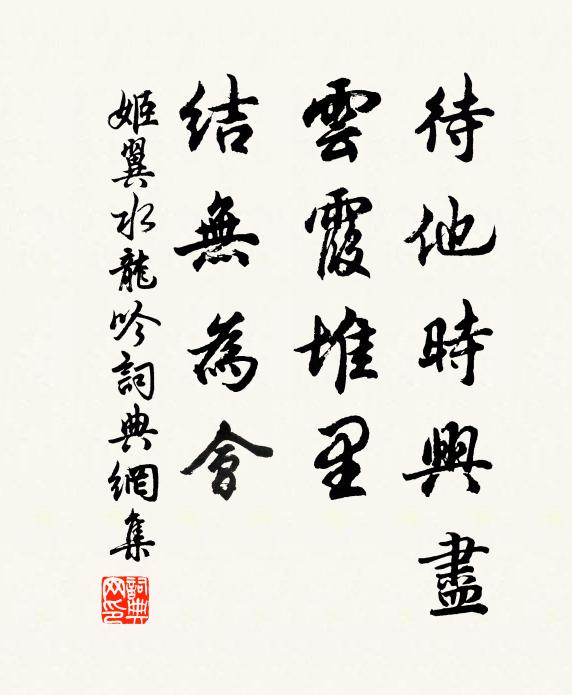 待他時興盡
雲霞堆里
結無為會
姬翼水龍吟詞典網集
詞典網印